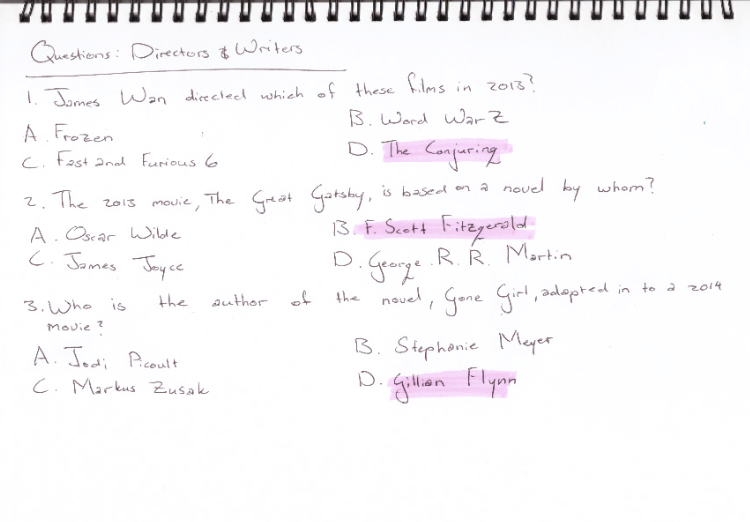 Questions: Directors & Writers
1. James Wan directed which of these films in 2013?
A. Frozen
B. Word War Z
C. Fast and Furious 6
D. The Conjuring
2. The 2013 movie, The Great Gatsby, is based on a novel by whom?
A. Oscar Wilde
B. F. Scott Fitzgerald
C. James Joyce
D. George. R. R. Martin
3. Who is the author of the novel, Gone Girl, adapted in to a 2014
movie?
A. Jodi Picoult
B. Stephanie Meyer
C. Markus Zusak
D. Gillian Flynn